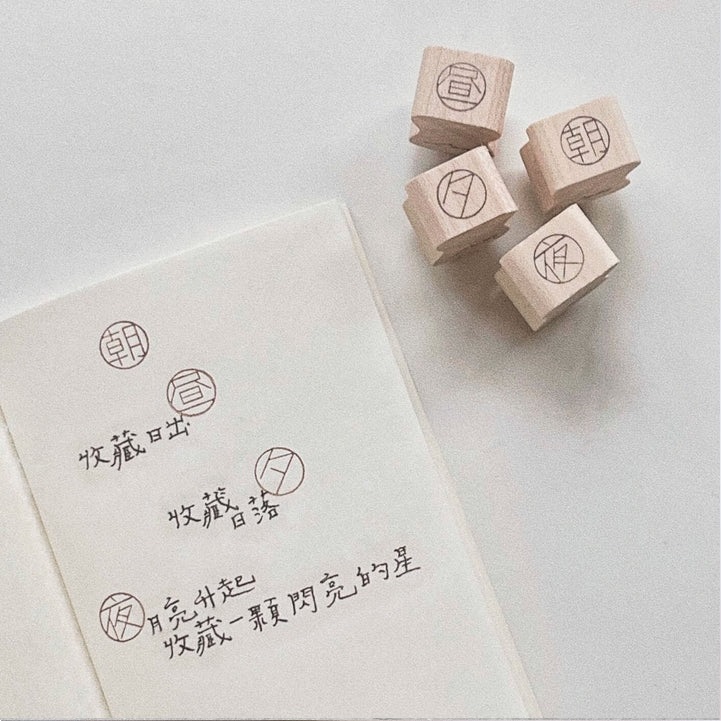 昼
朝
夕
夜
朝
昼
收藏日出
夕
收藏日落
夜 月亮升起
收藏一顆閃亮的星